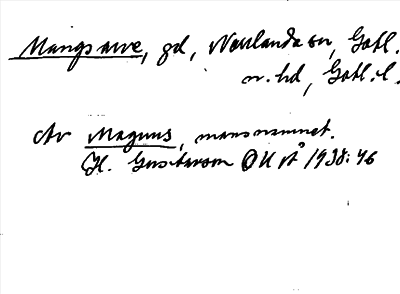 Mangsarve, gd, Norrlanda sn, Gotl.
n. hd, Gotl. l.
Av Magnus, mansnamnet.
H. Gustavson OUÅ 1938:46